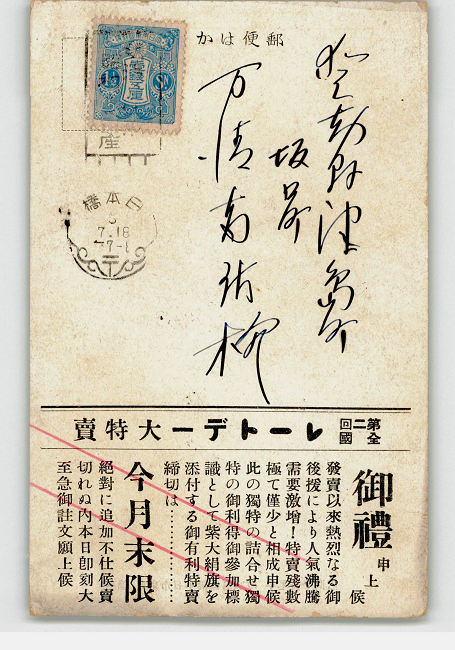 郵便はかき
坂
万清商
日本橋
7.18
大特賣
レートデー
第二回全國
御禮申上候
發賣以來熱烈なる御
後援により人氣沸騰
需要激增！特賣殘數
極て僅少と相成申候
此の獨特の詰合せ獨
特の御利得御參加標
識として紫大絹旗を
添付する御有利特賣
締切は…………………
今月末限
絕對に追加不仕候賣
切れぬ內本日卽刻大
至急御註文願上候